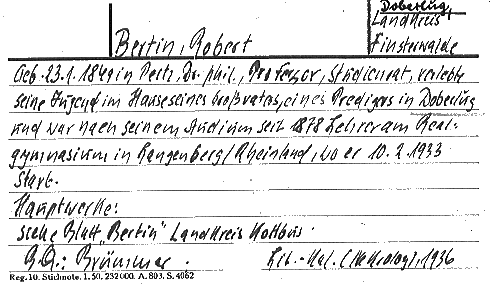 Doberlug,
Landkreis
Finsterwalde
Bertin, Robert
Geb. 23.1.1849 in Peitz, Dr. phil., Professor, Studienrat, verlebte
seine Jugend im Hause seines Großvaters, eines Predigers in Doberlug
und war nach seinem Studium seit 1878 Lehrer am Real-
gymnasium in Langenberg/Rheinland, wo er 10.2.1933
starb.
Hauptwerke:
siehe Blatt „Bertin" Landkreis Kottbus.
Brümmer. Lit.-Kal. (Nekrolog), 1936
Reg. 10. Stichnote. 1. 50. 232000. A. 803. S. 4062